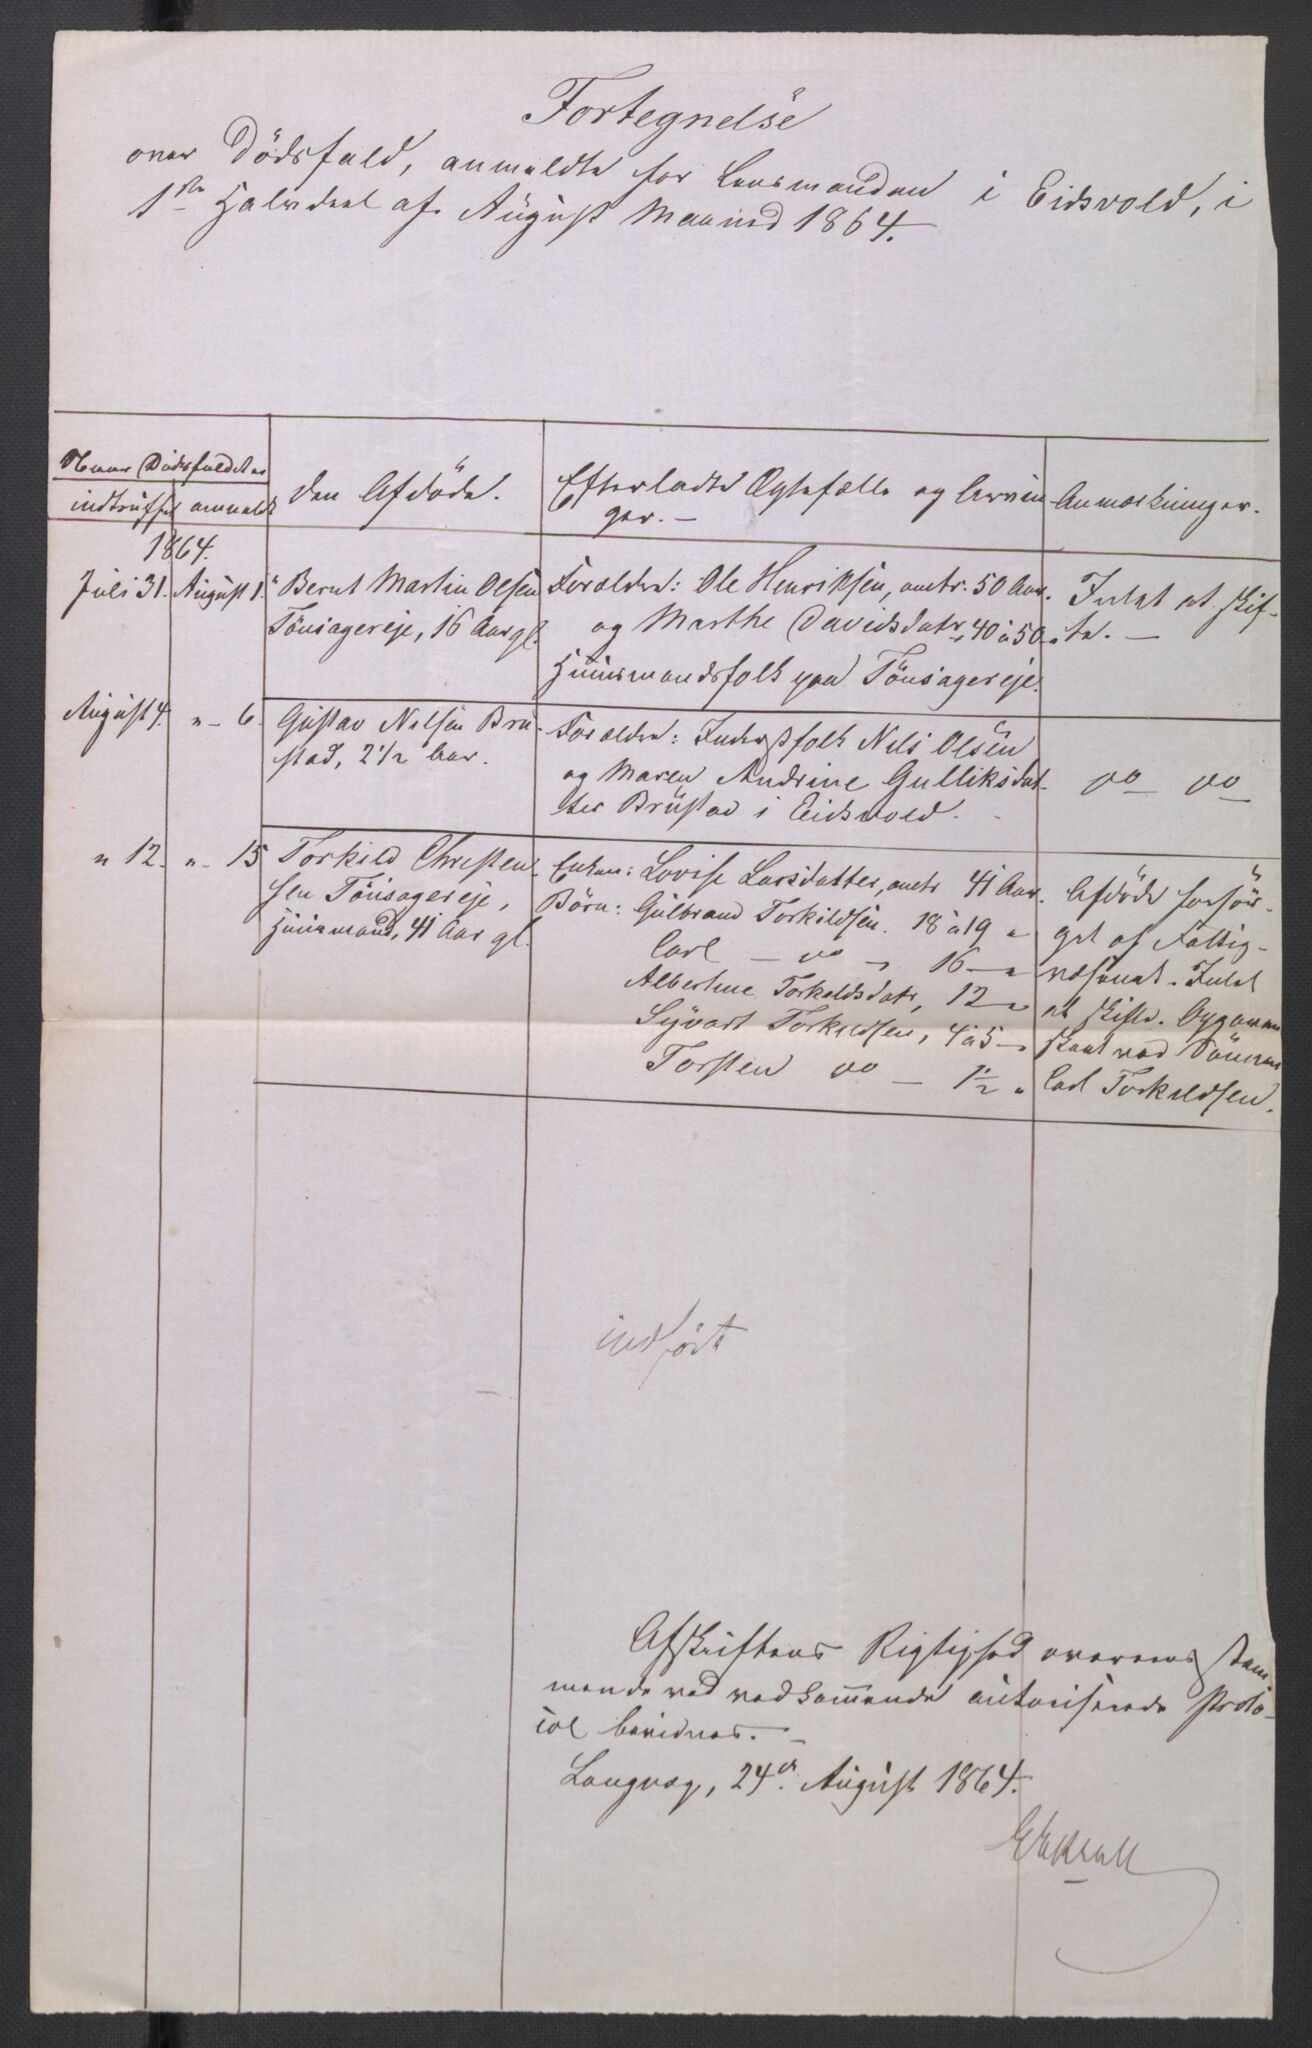 Fortegnelse
over Dödsfald, anmeldte for Lensmanden i Eidsvold, i
1ste Halvdeel af August Maaned 1864.
Naar Dödsfaldet er
indtruffet anmeldt
Den Afdöde.
Efterladte Ægtefælle og Arvin-
ger. -
Anmærkninger.
1864.
Juli 31. August 1. Bernt Martin Olsen
Tönsagereje, 16 Aar gl.
Forældre: Ole Henriksen, omtr. 50 Aar.
og Marthe Davidsdatr, 40 à 50 "
Huusmandsfolk paa Tönsagereje.
Intet at skif-
te. -
August 4. " - 6. Gustav Nilsen Bru-
stad, 2 1/2 Aar.
Forældre: Inderstfolk Nils Olsen
og Maren Andrine Gulliksdat-
ter Brustad i Eidsvold.
do do
" 12. " - 15 Torkild Christen-
sen Tönsagereje,
Huusmand, 41 Aar gl.
Enken: Lovise Larsdatter, omtr 41 Aar.
Börn: Gulbrand Torkildsen. 18 à 19 "
Carl - do - 16 - "
Albertine Torkeldsdatr, 12 - "
Syvart Torkildsen, 4 à 5 - "
Torsten do - 1 1/2 "
Afdöde forsör-
get af Fattig-
væsenet. Intet
at skifte. Opgaven
skeet ved Sönnen
Carl Torkeldsen.
indført
Afskriftens Rigtighed overensstem-
mende med vedkommende autoriserede Proto-
col bevidnes. -
Langvog, 24de August 1864.